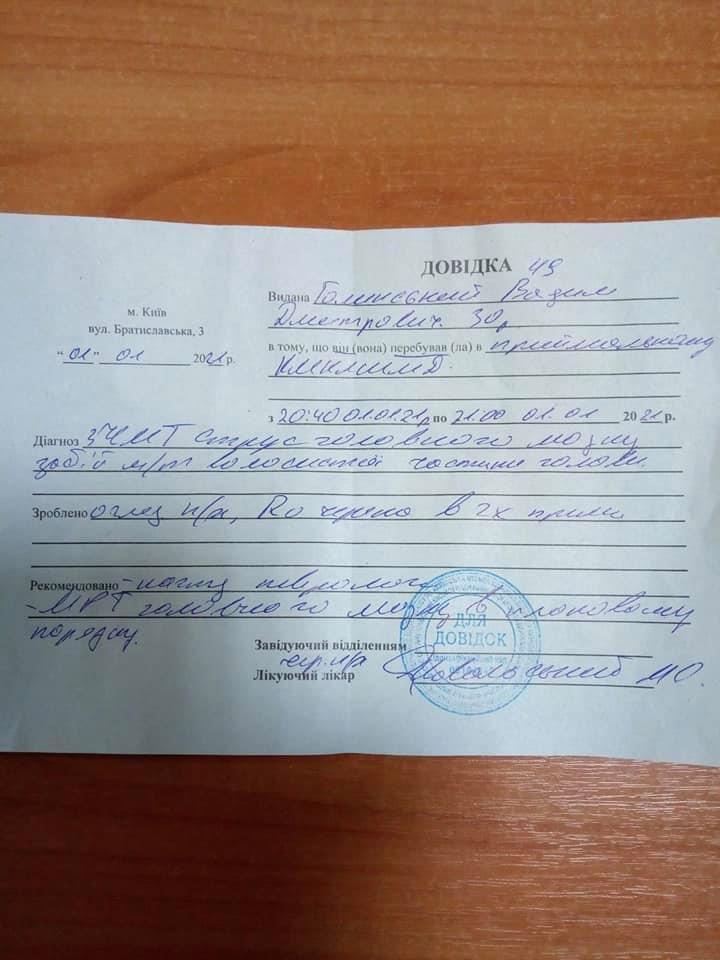 ДОВІДКА 49
м. Київ
вул. Братиславська, 3
"01" 01 2021 р.
Видана Вадим
Дмитрович. 30р
в тому, що він (вона) перебував (ла) в приймальному
КМКЛШМД.
з 20:40 01.01.21р по 21:00 01.01 2021 р.
Діагноз ЗЧМТ Струс головного мозку
забій м/т волосистої частини голови.
Зроблено огляд н/х, Ro черепа в 2х
Рекомендовано - нагляд невролога
- МРТ головного мозку в плановому
порядку.
Завідуючий відділенням
Лікуючий лікар
ДЛЯ
ДОВІДОК